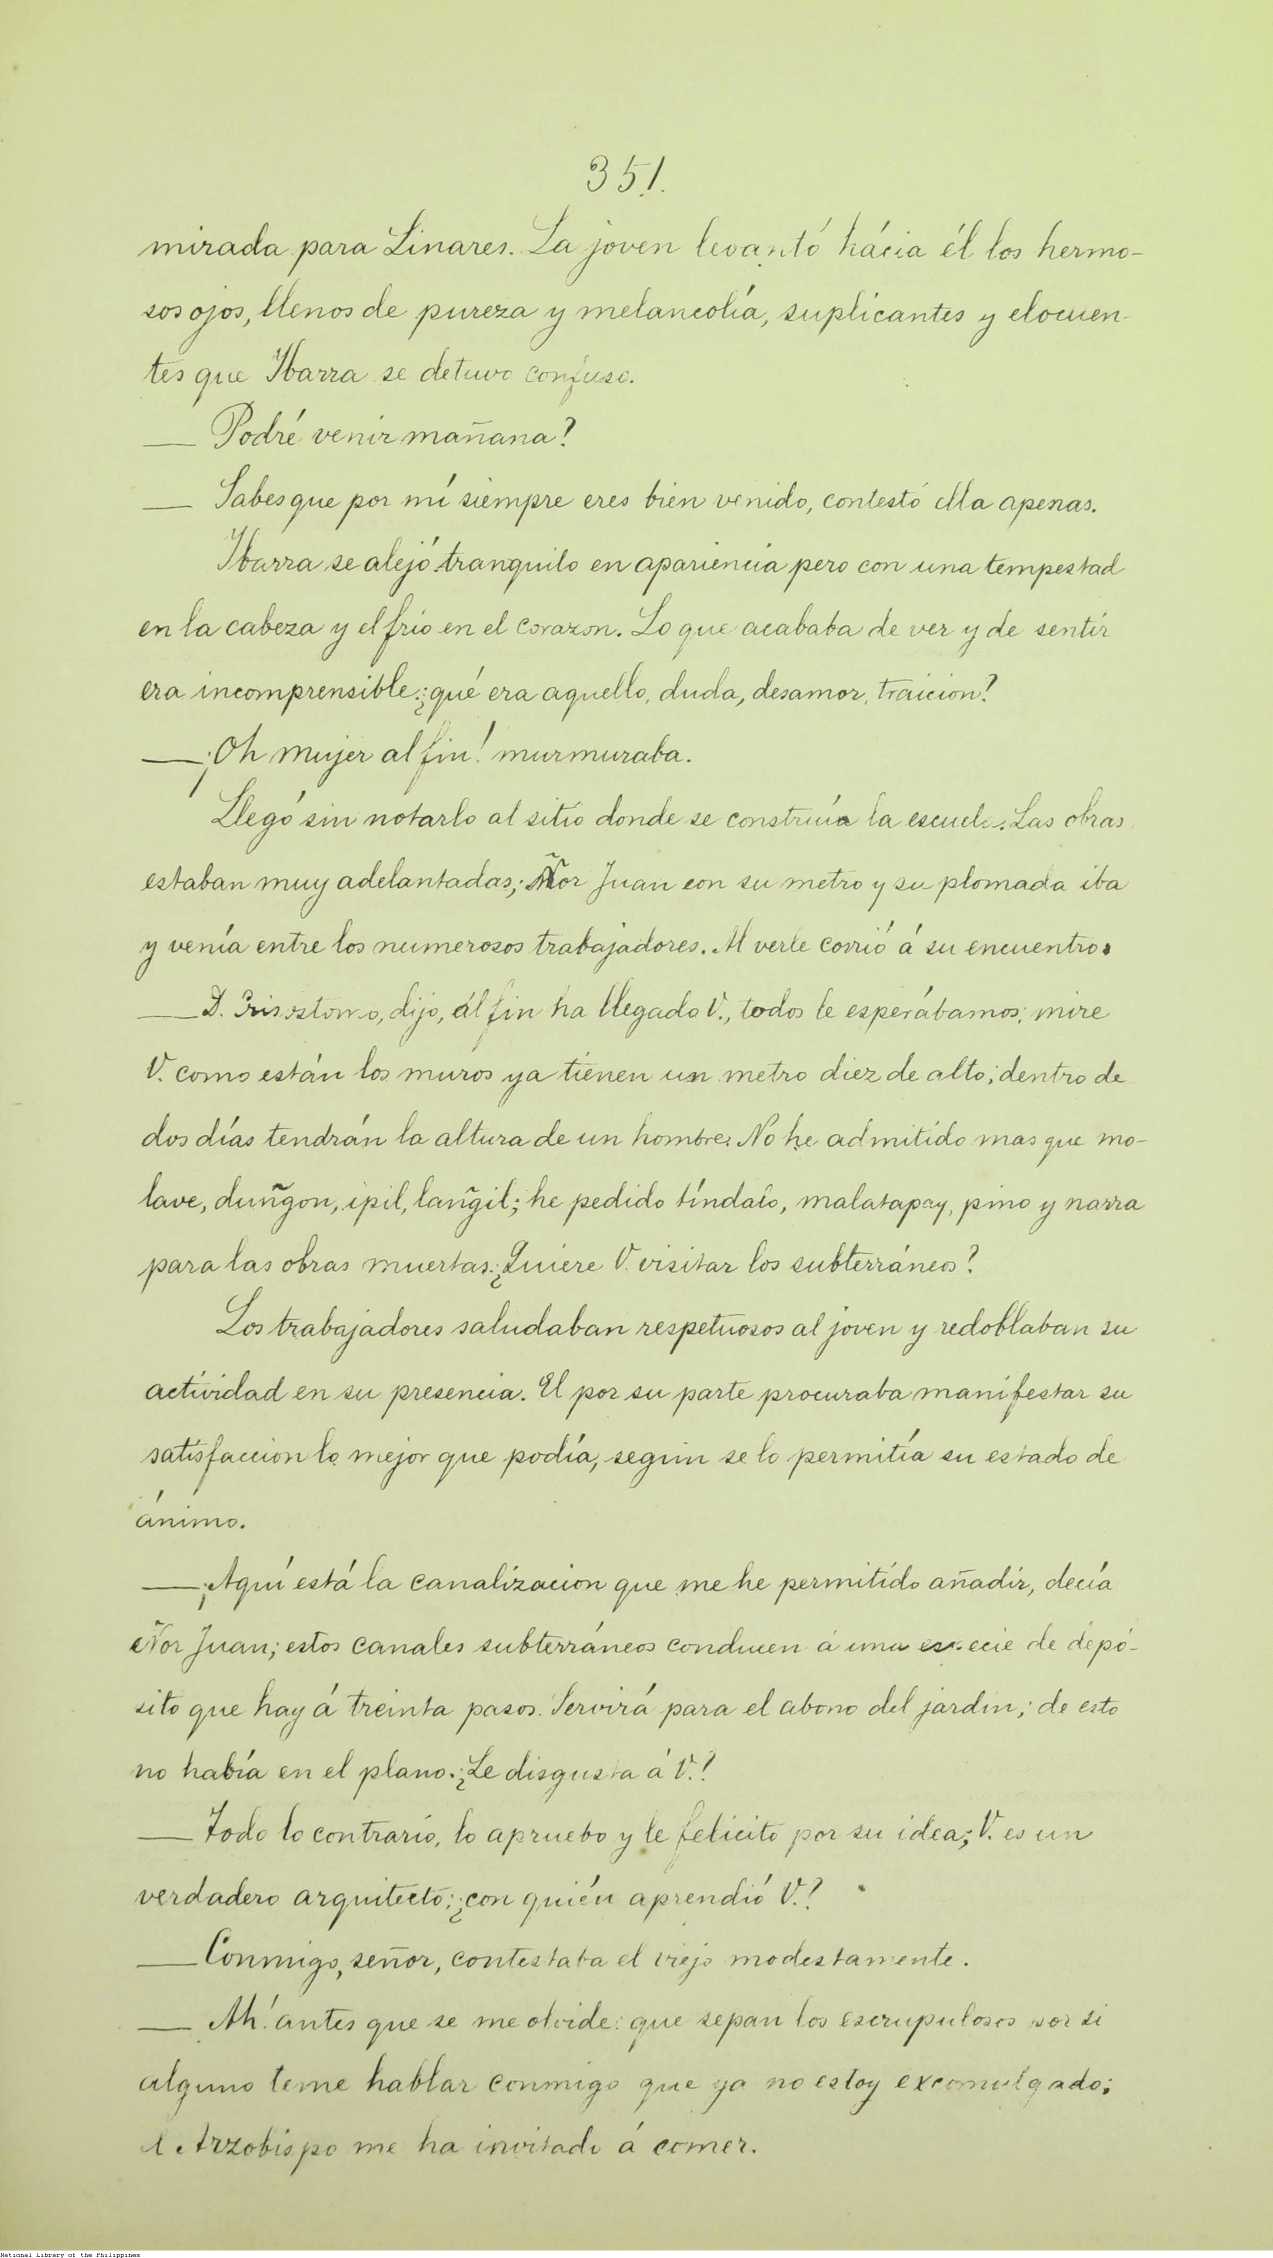 351.
mirada para Linares. La joven levantó hácia él los hermo-
sos ojos, llenos de pureza y melancolía, suplicantes y elocuen-
tes que Ibarra se detuvo confuso.
— Podré venir mañana?
— Sabes que por mí siempre eres bien venido, contestó ella apenas.
Ibarra se alejó tranquilo en apariencia pero con una tempestad
en la cabeza y el frío en el corazon. Lo que acababa de ver y de sentir
era incomprensible: ¿qué era aquello, duda, desamor, traicion?
— ¡Oh mujer al fin! murmuraba.
Llegó sin notarlo al sitio donde se construía la escuela. Las obras
estaban muy adelantadas; Ñor Juan con su metro y su plomada iba
y venía entre los numerosos trabajadores. Al verle corrió á su encuentro.
— D. Crisostomo, dijo, ál fin ha llegado V., todos le esperábamos; mire
V. como están los muros ya tienen un metro diez de alto; dentro de
dos días tendrán la altura de un hombre. No he admitido mas que mo-
lave, duñgon, ipil, lañgil; he pedido tíndalo, malatapay, pino y narra
para las obras muertas. ¿Quiere V. visitar los subterráneos?
Los trabajadores saludaban respetuosos al joven y redoblaban su
actividad en su presencia. El por su parte procuraba manifestar su
satisfaccion lo mejor que podía, segun se lo permitía su estado de
ánimo.
— ¡Aquí está la canalizacion que me he permitido añadir, decía
Ñor Juan; estos canales subterráneos conducen á una especie de depó-
sito que hay á treinta pasos. Servirá para el abono del jardin; de esto
no había en el plano. ¿Le disgusta á V.?
— Todo lo contrario, lo apruebo y le felicito por su idea; V. es un
verdadero arquitecto; ¿con quién aprendió V.?
— Conmigo, señor, contestaba el viejo modestamente.
— Ah! antes que se me olvide: que sepan los escrupulosos por si
alguno teme hablar conmigo que ya no estoy excomulgado;
el Arzobispo me ha invitado á comer.
National Library of the Philippines